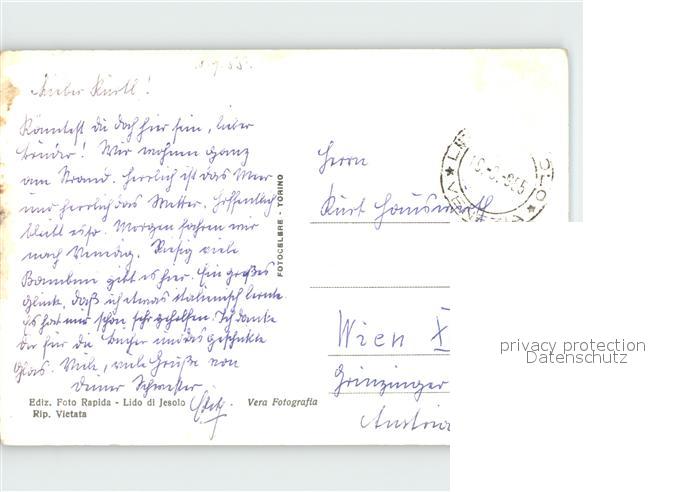 Lieber Kurtl!
Könntest du doch hier sein, lieber
Bruder! Wir wohnen ganz
am Strand. Herrlich ist das Meer
und herrlich das Wetter. Hoffentlich
bleibt es so. Morgen fahren wir
nach Venedig. Riesig viele
Bambini gibt es hier. Ein großes
Glück, daß ich etwas italienisch lernte.
Es hat mir schon sehr geholfen. Ich danke
dir für die Bücher und das geschickte
Glas. Viele, viele Grüße von
deiner Schwester
Ediz. Foto Rapida - Lido di Jesolo
Vera Fotografia
Rip. Vietata
FOTOCELERE - TORINO
Herrn
Kurt Hauswirth
Wien X
Grinzinger
Austria
privacy protection
Datenschutz